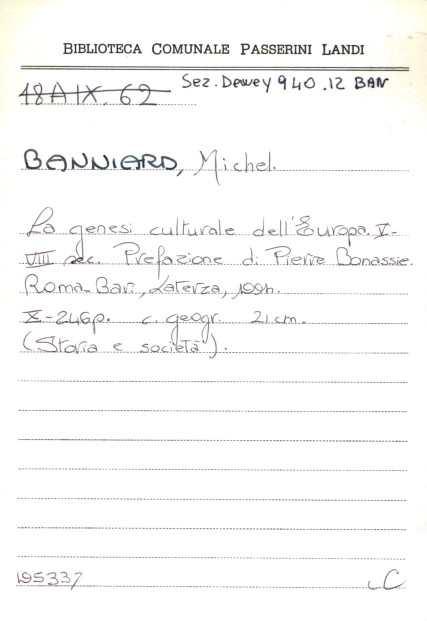 BIBLIOTECA COMUNALE PASSERINI LANDI
18 A IX. 62 Sez. Dewey 940.12 BAN
BANNIARD, Michel.
La genesi culturale dell'Europa. V-
VIII sec. Prefazione di Pierre Bonassie.
Roma-Bari, Laterza, 1994.
X-246p. c. geogr. 21 cm.
(Storia e società).
195337